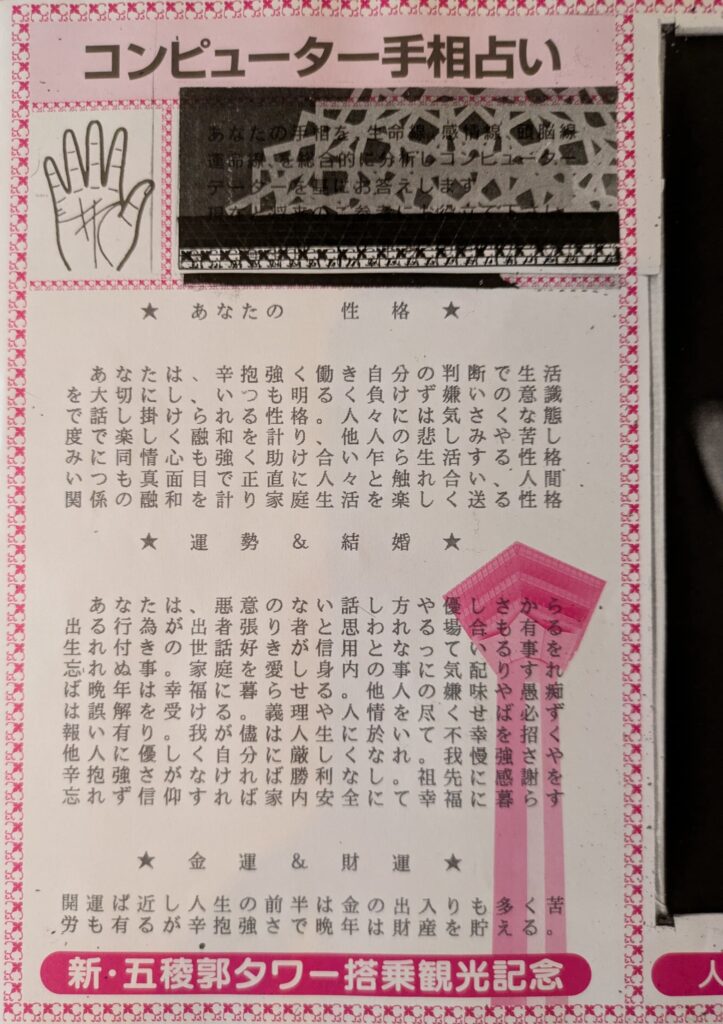 コンピューター手相占い
あなたの手相を 生命線 感情線 頭脳線
運命線 を総合的に分析しコンピューター
データーを基にお答えします
現在と将来のご参考にお役立て下さい
★ あなたの 性格 ★
あなたは、辛抱強く働き自分の判断で生活
を大切にし、いつも明るく負けず嫌いの意識
で話し掛けられる性格。人々には気さくな態
度で楽しく融和を計り、他人の悲しみや苦し
みに同情心も強く助け合い乍ら生活する性格
いつも真面目で正直に人々と触れ合い、人間
関係の融和を計り家庭生活を楽しく送る性格
★ 運勢 & 結婚 ★
あなたは、悪意のない話し方や優しさから
出る行為が出者張り者と思われる場合も有る
生れ付きの世話好きが信用となっている事を
忘れぬ事。家庭を愛し身内の事に気配りすれ
ば晩年は幸福に暮らせる。他人の嫌味や愚痴
は誤解を受ける。義理や人情を尽くせば必ず
報い有り。我が儘は人生に於いて不幸を招く
他人に優しく自分に厳しくなれ。我慢強さや
辛抱強さがなければ勝利なし。祖先に感謝を
忘れず信仰すれば家内安全にて幸福に暮らす
★ 金運 & 財運 ★
開運ば近し人生の前半は金の出入りも多く苦
労も有るが辛抱強さで晩年は財産を貯える。
新・五稜郭タワー搭乗観光記念
人